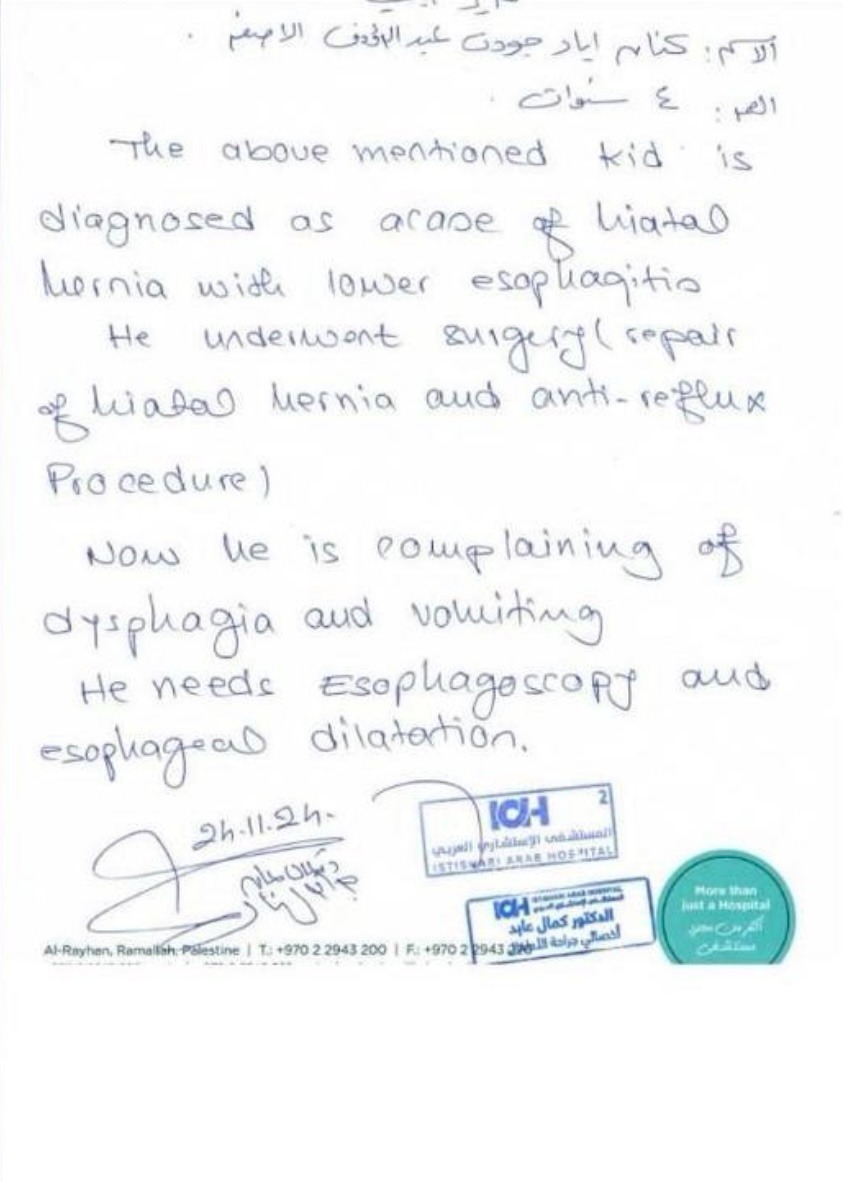 الاسم: كنان اياد جودت عبد الرؤوف الاصفر .
العمر: ٤ سنوات .
The above mentioned kid is
diagnosed as a case of hiatal
hernia with lower esophagitis
He underwent surgery ( repair
of hiatal hernia and anti-reflux
Procedure )
Now he is complaining of
dysphagia and vomiting
He needs Esophagoscopy and
esophageal dilatation.
24.11.24.
ICH 2
المستشفى الإستشاري العربي
ISTISHARI ARAB HOSPITAL
ICH ISTISHARI ARAB HOSPITAL
الدكتور كمال عابد
أخصائي جراحة الأطفال
More than
just a Hospital
أكثر من مجرد
مستشفى
Al-Rayhan, Ramallah, Palestine | T.: +970 2 2943 200 | F.: +970 2 2943